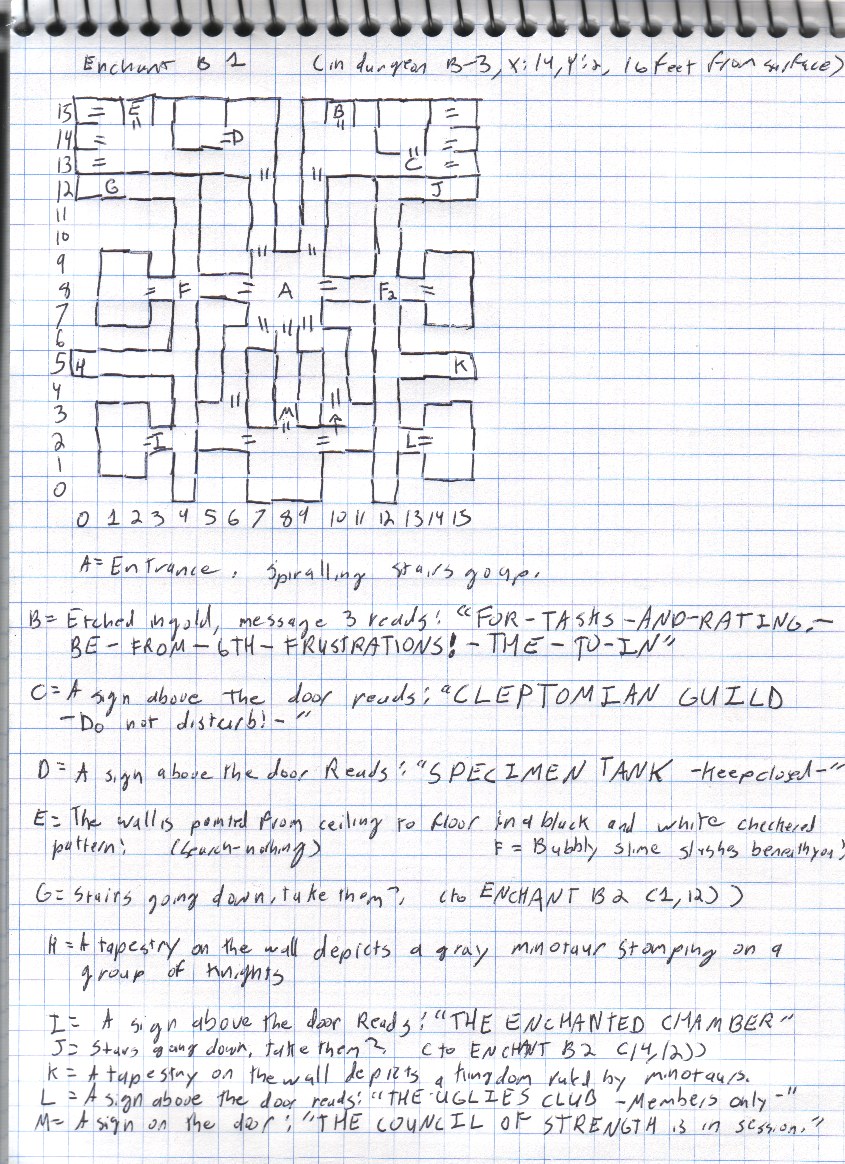 Enchant B 1 (in dungeon B-3, X:14, Y:2, 16 feet from surface)
15 = E B =
14 = =D =
13 = C =
12 G J
11
10
9
8 = F = A = F2 =
7
6
5 H K
4
3 M ↑
2 =I = = L=
1
0
0 1 2 3 4 5 6 7 8 9 10 11 12 13 14 15
A= Entrance. Spiralling stairs go up.
B= Etched in gold, message 3 reads: "FOR-TASKS-AND-RATING.-
BE-FROM-6TH-FRUSTRATIONS!-THE-TO-IN"
C= A sign above the door reads: "CLEPTOMIAN GUILD
-Do not disturb!-"
D= A sign above the door Reads: "SPECIMEN TANK -Keep closed-"
E= The wall is painted from ceiling to floor in a black and white checkered
pattern: (Search-nothing) F = Bubbly slime sloshes beneath you)
G= stairs going down, take them? (to ENCHANT B 2 (1,12))
H= A tapestry on the wall depicts a gray minotaur stomping on a
group of knights
I= A sign above the door Reads: "THE ENCHANTED CHAMBER"
J= Stairs going down, take them? (to ENCHANT B 2 (14,12))
K= A tapestry on the wall depicts a kingdom ruled by minotaurs.
L = A sign above the door reads: "THE UGLIES CLUB -Members only-"
M= A sign on the door: "THE COUNCIL OF STRENGTH is in session."